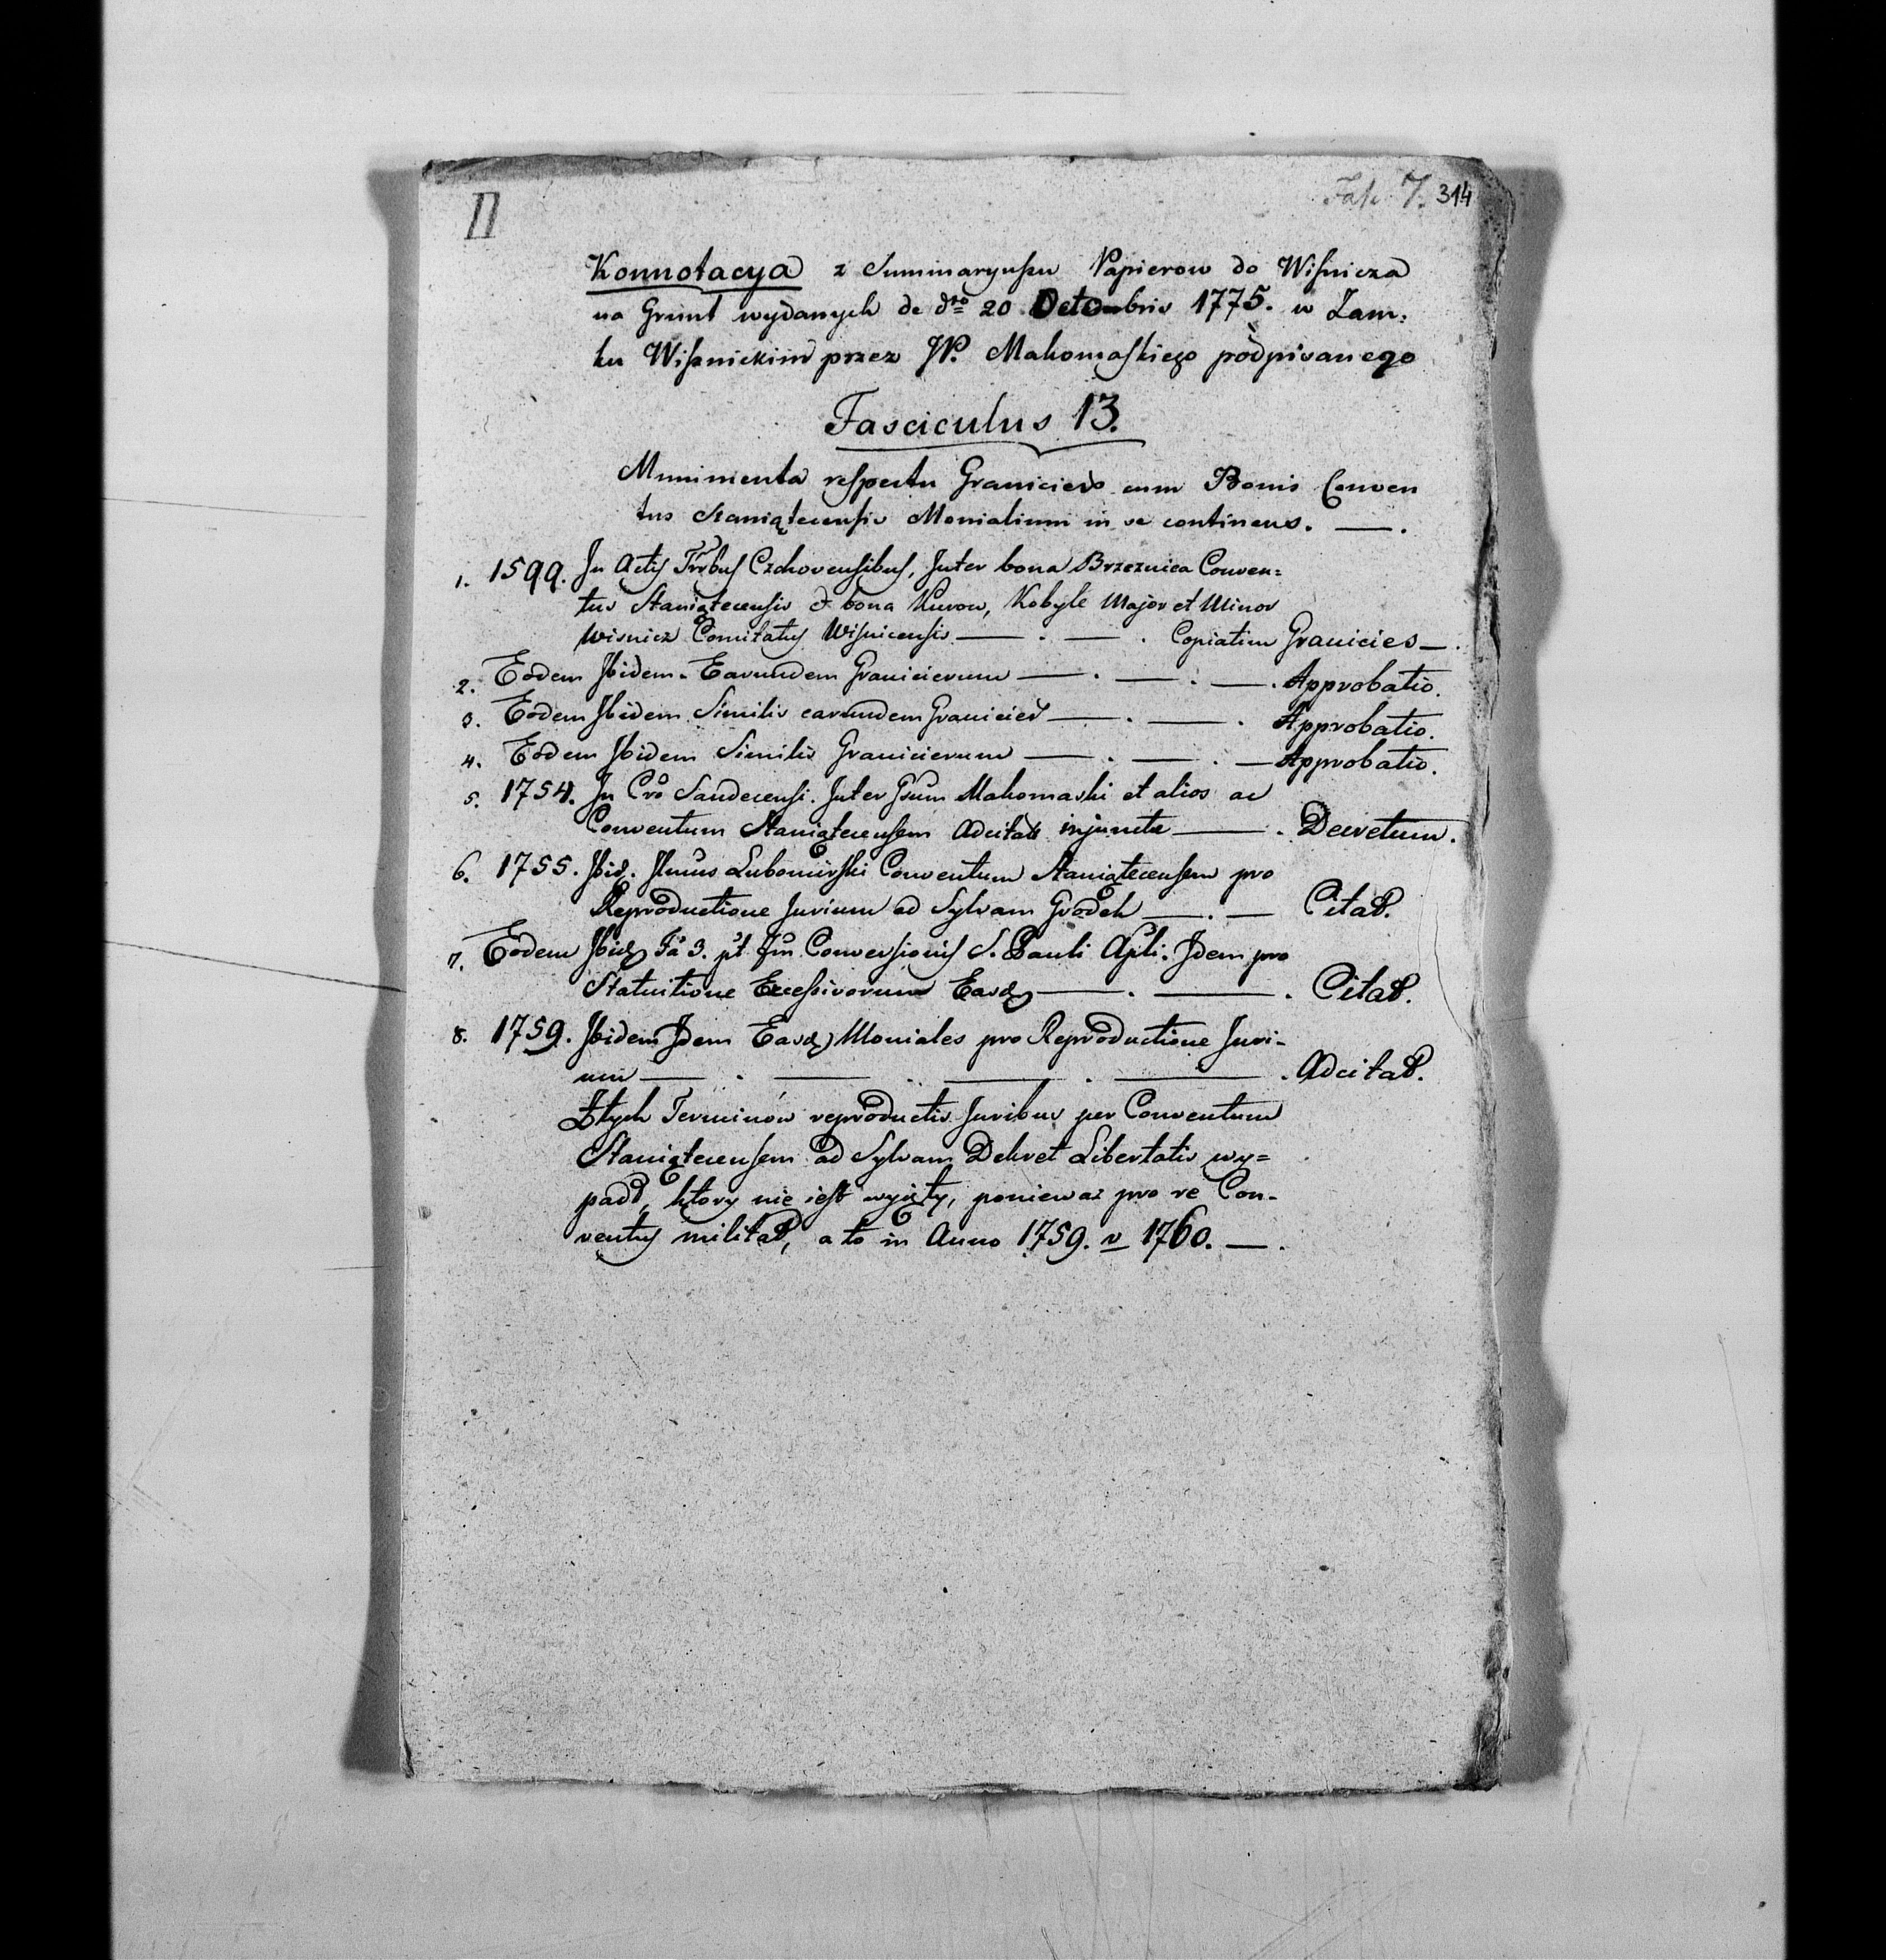 II
Fasc. 7. 314
Konnotacya z Summaryuszu Papierow do Wisnicza
na Grunt wydanych de dto 20 Octobris 1775. w Zam:
ku Wisznickim przez JP. Makomaskiego podpisanego
Fasciculus 13.
Munimenta respectu Granicierum cum Bonis Conven
tus Staniątecensis Monialium in se continens. — .
1. 1599. In Actis Trrbus Czchoviensibus, Inter bona Brzeznica Conven=
tus Staniątecensis et bona Kurow, Kobyle Major et Minor
Wisnicz Comitatus Wisnicensis — . — . Copiatim Granicies — .
2. Eodem Ibidem. Earundem Granicierum — . — . — . Approbatio.
3. Eodem Ibidem Similis earundem Granicier — . — . Approbatio.
4. Eodem Ibidem Similis Granicierum — . — . — Approbatio.
5. 1754. In Cro Sandecensi. Inter Gsum Makomaski et alios ac
Conventum Staniątecensem Adcitatt injuncta — . Decretum.
6. 1755. Ibid. Illmus Lubomirski Conventum Staniątecensem pro
Reproductione Jurium ad Sylvam Grodek — . — Citatt.
7. Eodem Ibid Fa 3. pt fm Conversionis S. Pauli Apli. Idem pro
Statuitione Excessivorum Easd — . — . Citatt.
8. 1759. Ibidem Idem Easd Moniales pro Reproductione Juri-
um — . — . — . — . Adcitatt.
Z tych Terminów reproductis Juribus per Conventum
Staniątecensem ad Sylvam Dekret Libertatis wy=
padł, ktory nie iest wyięty, poniewaz pro re Con-
ventus militat, a to in Anno 1759. v 1760. — .